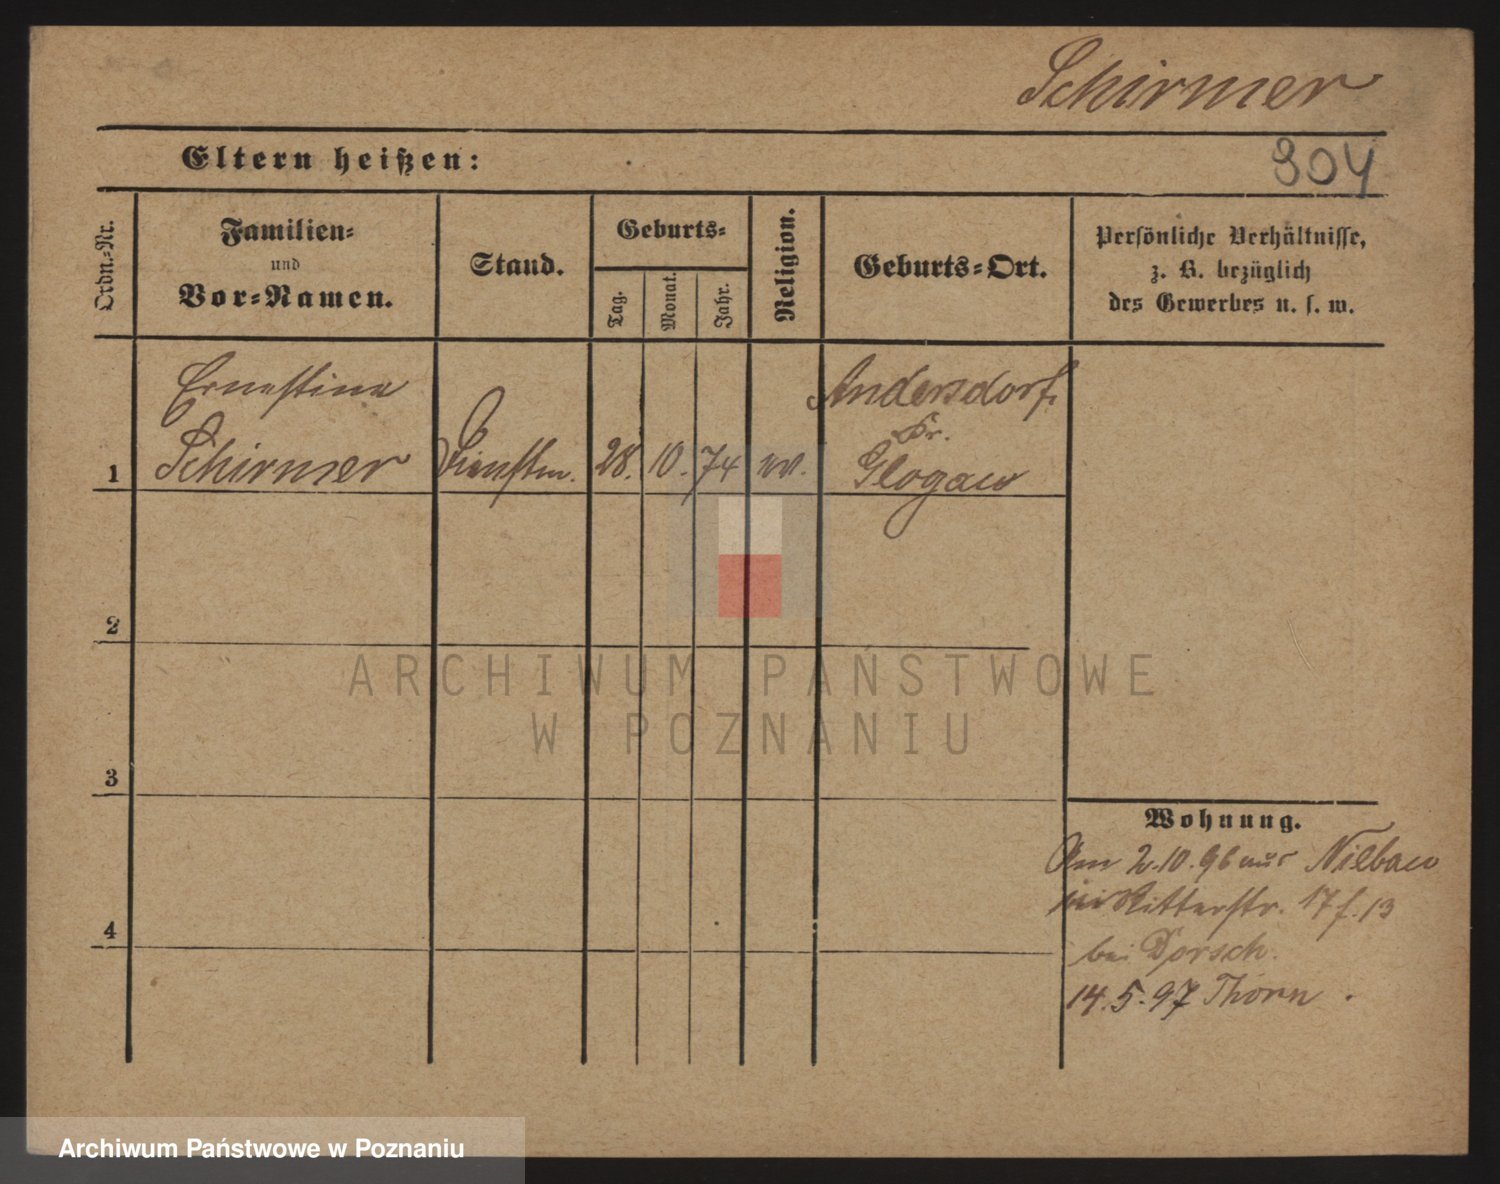 Schirmer
Eltern heißen:
904
Ordn.-Nr.
Familien-
und
Vor-Namen.
Stand.
Geburts-
Tag.
Monat.
Jahr.
Religion.
Geburts-Ort.
Persönliche Verhältnisse,
z. B. bezüglich
des Gewerbes u. s. w.
Ernestine
Schirmer
Dienstm.
28. 10. 74
Andersdorf
Kr.
Glogau
1
2
3
4
Wohnung.
Am 2.10.96 aus Nilbau
Ritterstr. 17 f. 13
bei Dorsch.
14.5.97 Thorn.
ARCHIWUM PAŃSTWOWE
W POZNANIU
Archiwum Państwowe w Poznaniu